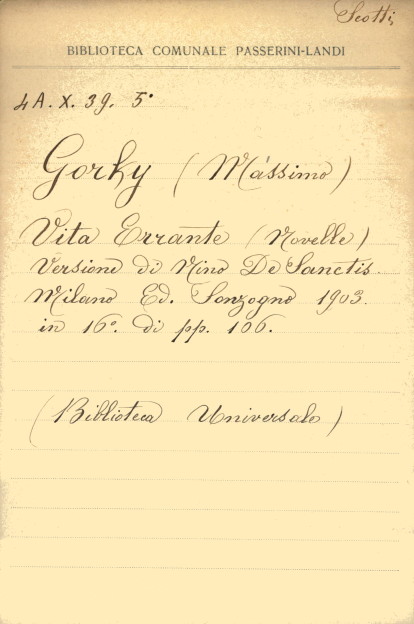 Scotti
BIBLIOTECA COMUNALE PASSERINI-LANDI
4A. X. 39. 5°
Gorky (Màssimo)
Vita Errante (Novelle)
Versione di Nino De Sanctis.
Milano Ed. Sonzogno 1903.
in 16°. di pp. 106.
(Biblioteca Universale)